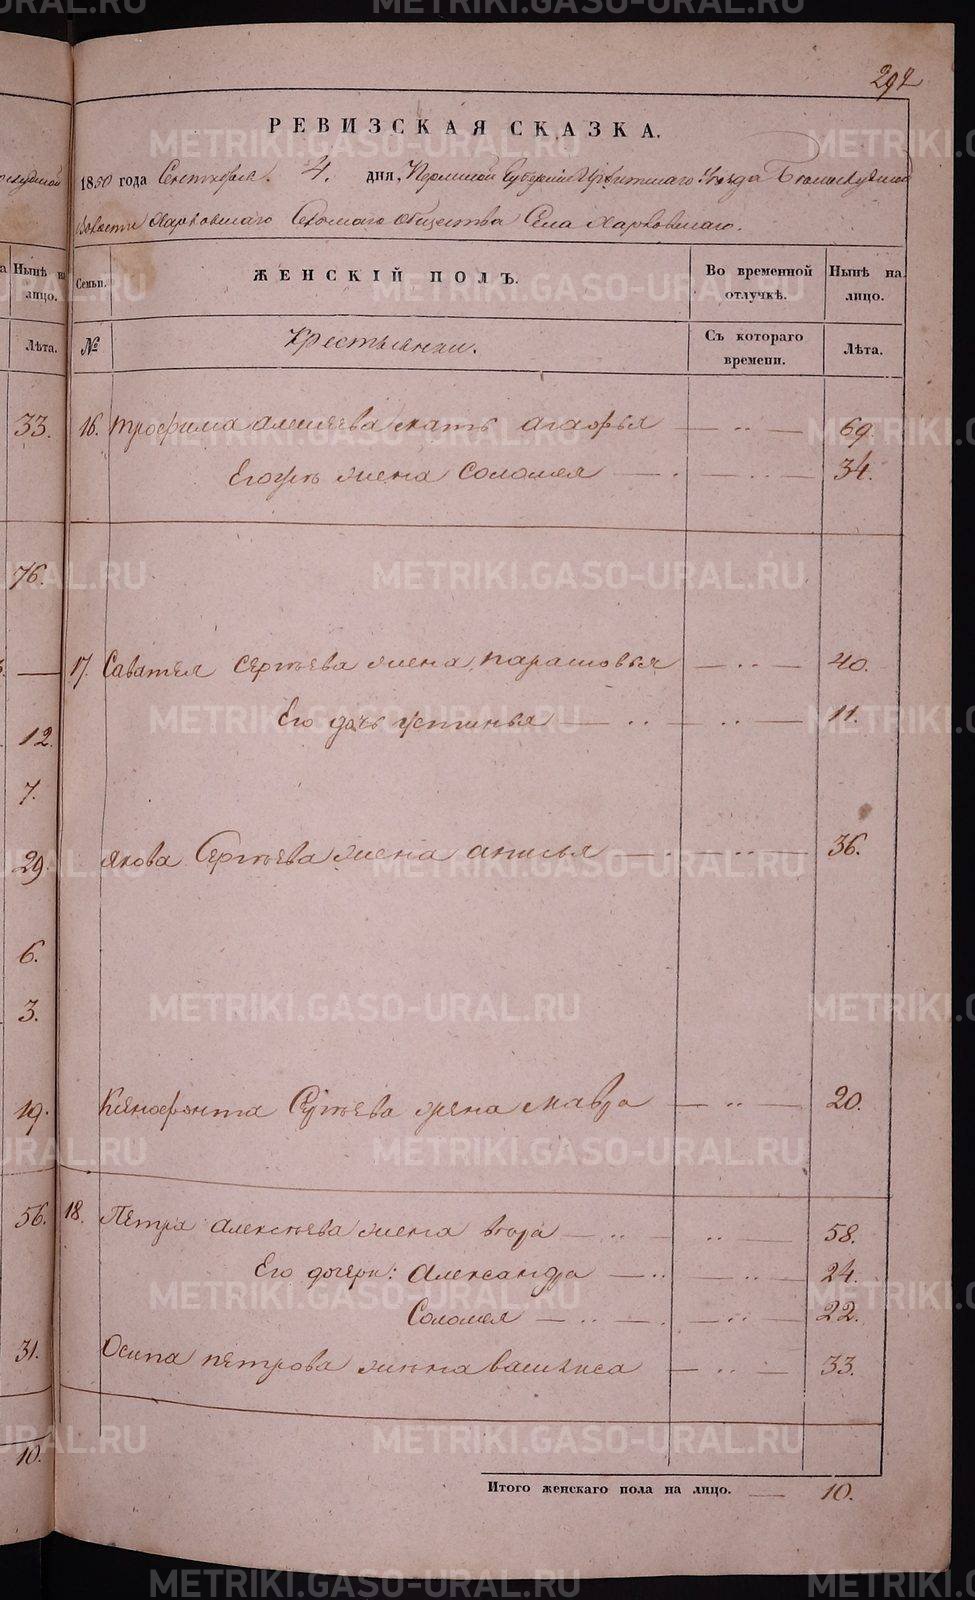 292
РЕВИЗСКАЯ СКАЗКА.
1850 года Сентября 4. дня, Пермской Губернии Ирбитскаго Уезда Белослудской
Волости Харловскаго Сельскаго общества Села Харловскаго.
Нынѣ на лицо.
Семьи.
ЖЕНСКІЙ ПОЛЪ.
Во временной отлучкѣ.
Нынѣ на лицо.
Лѣта.
№
Крестьянки.
Съ котораго времени.
Лѣта.
33. 16. Трофима Алексѣева мать агафья — „ — 69.
Егоже жена Соломея — „ — 34.
76.
17. Саватея Сергѣева жена Парасковья — „ — 40.
12. Его дочь Устинья — „ — 11.
7.
29. Якова Сергѣева жена анисья — „ — 36.
6.
3.
19. Ксенофонта Сергѣева жена мавра — „ — 20.
56. 18. Петра алексѣева жена — „ — 58.
Его дочери: Александра — „ — 24.
Соломея — „ — 22.
31. Осипа петрова жена василиса — „ — 33.
10.
Итого женскаго пола на лицо. — 10.
METRIKI.GASO-URAL.RU